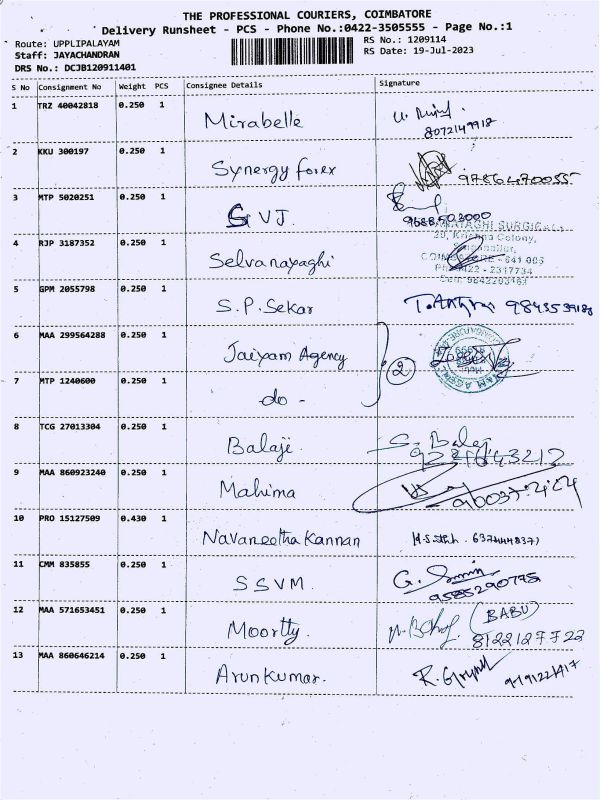 THE PROFESSIONAL COURIERS, COIMBATORE
Delivery Runsheet - PCS - Phone No.:0422-3505555 - Page No.:1
Route: UPPLIPALAYAM
RS No.: 1209114
Staff: JAYACHANDRAN
RS Date: 19-Jul-2023
DRS No.: DCJB120911401
S No Consignment No Weight PCS Consignee Details Signature
1 TRZ 40042818 0.250 1 Mirabelle
8072149918
2 KKU 300197 0.250 1 Synergy forex 9786470055
3 MTP 5020251 0.250 1 GVJ
9688503000
4 RJP 3187352 0.250 1 Selvanayaghi
SURGICAL
20, Krishna Colony,
COIMBATORE - 641 005
Ph: 0422 - 2317734
5 GPM 2055798 0.250 1 S.P.Sekar
6 MAA 299564288 0.250 1 Jaiyam Agency
2
7 MTP 1240600 0.250 1 do -
8 TCG 27013304 0.250 1 Balaji S. Balaji
9 MAA 860923240 0.250 1 Mahima
10 PRO 15127509 0.430 1 Navaneetha Kannan
11 CMM 835855 0.250 1 SSVM
9585290775
12 MAA 571653451 0.250 1 Moortty. (BABU)
8122127722
13 MAA 860646214 0.250 1 Arunkumar.